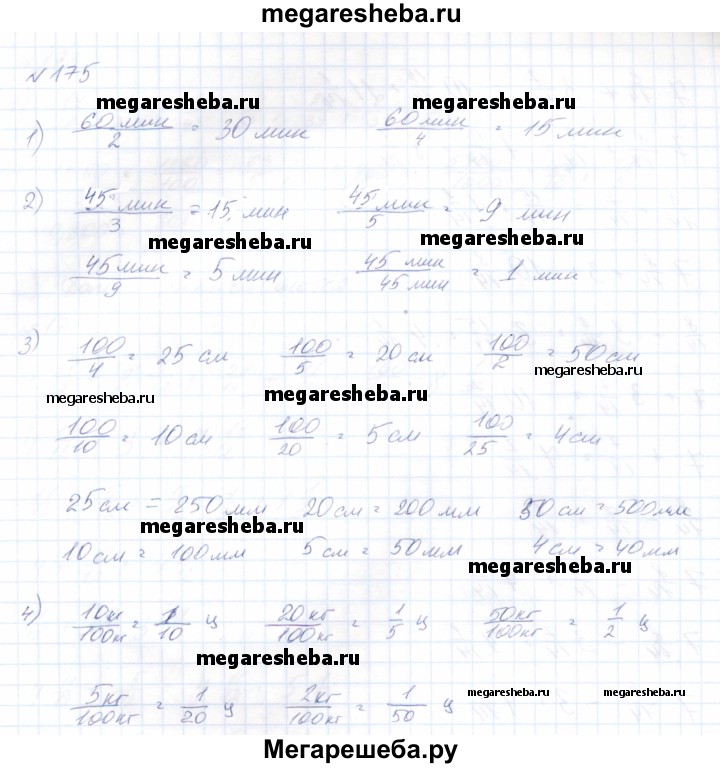 megaresheba.ru
№175
megaresheba.ru megaresheba.ru
1) 60 мин/2 = 30 мин 60 мин/4 = 15 мин
2) 45 мин/3 = 15 мин 45 мин/5 = 9 мин
megaresheba.ru megaresheba.ru
45 мин/9 = 5 мин 45 мин/45 мин = 1 мин
3) 100/4 = 25 см 100/5 = 20 см 100/2 = 50 см
megaresheba.ru megaresheba.ru megaresheba.ru
100/10 = 10 см 100/20 = 5 см 100/25 = 4 см
25 см = 250 мм 20 см = 200 мм 50 см = 500 мм
megaresheba.ru
10 см = 100 мм 5 см = 50 мм 4 см = 40 мм
megaresheba.ru
4) 10кг/100кг = 1/10 ц 20кг/100кг = 1/5 ц 50кг/100кг = 1/2 ц
megaresheba.ru
5кг/100кг = 1/20 ц 2кг/100кг = 1/50 ц
megaresheba.ru megaresheba.ru
Мегарешеба.ру